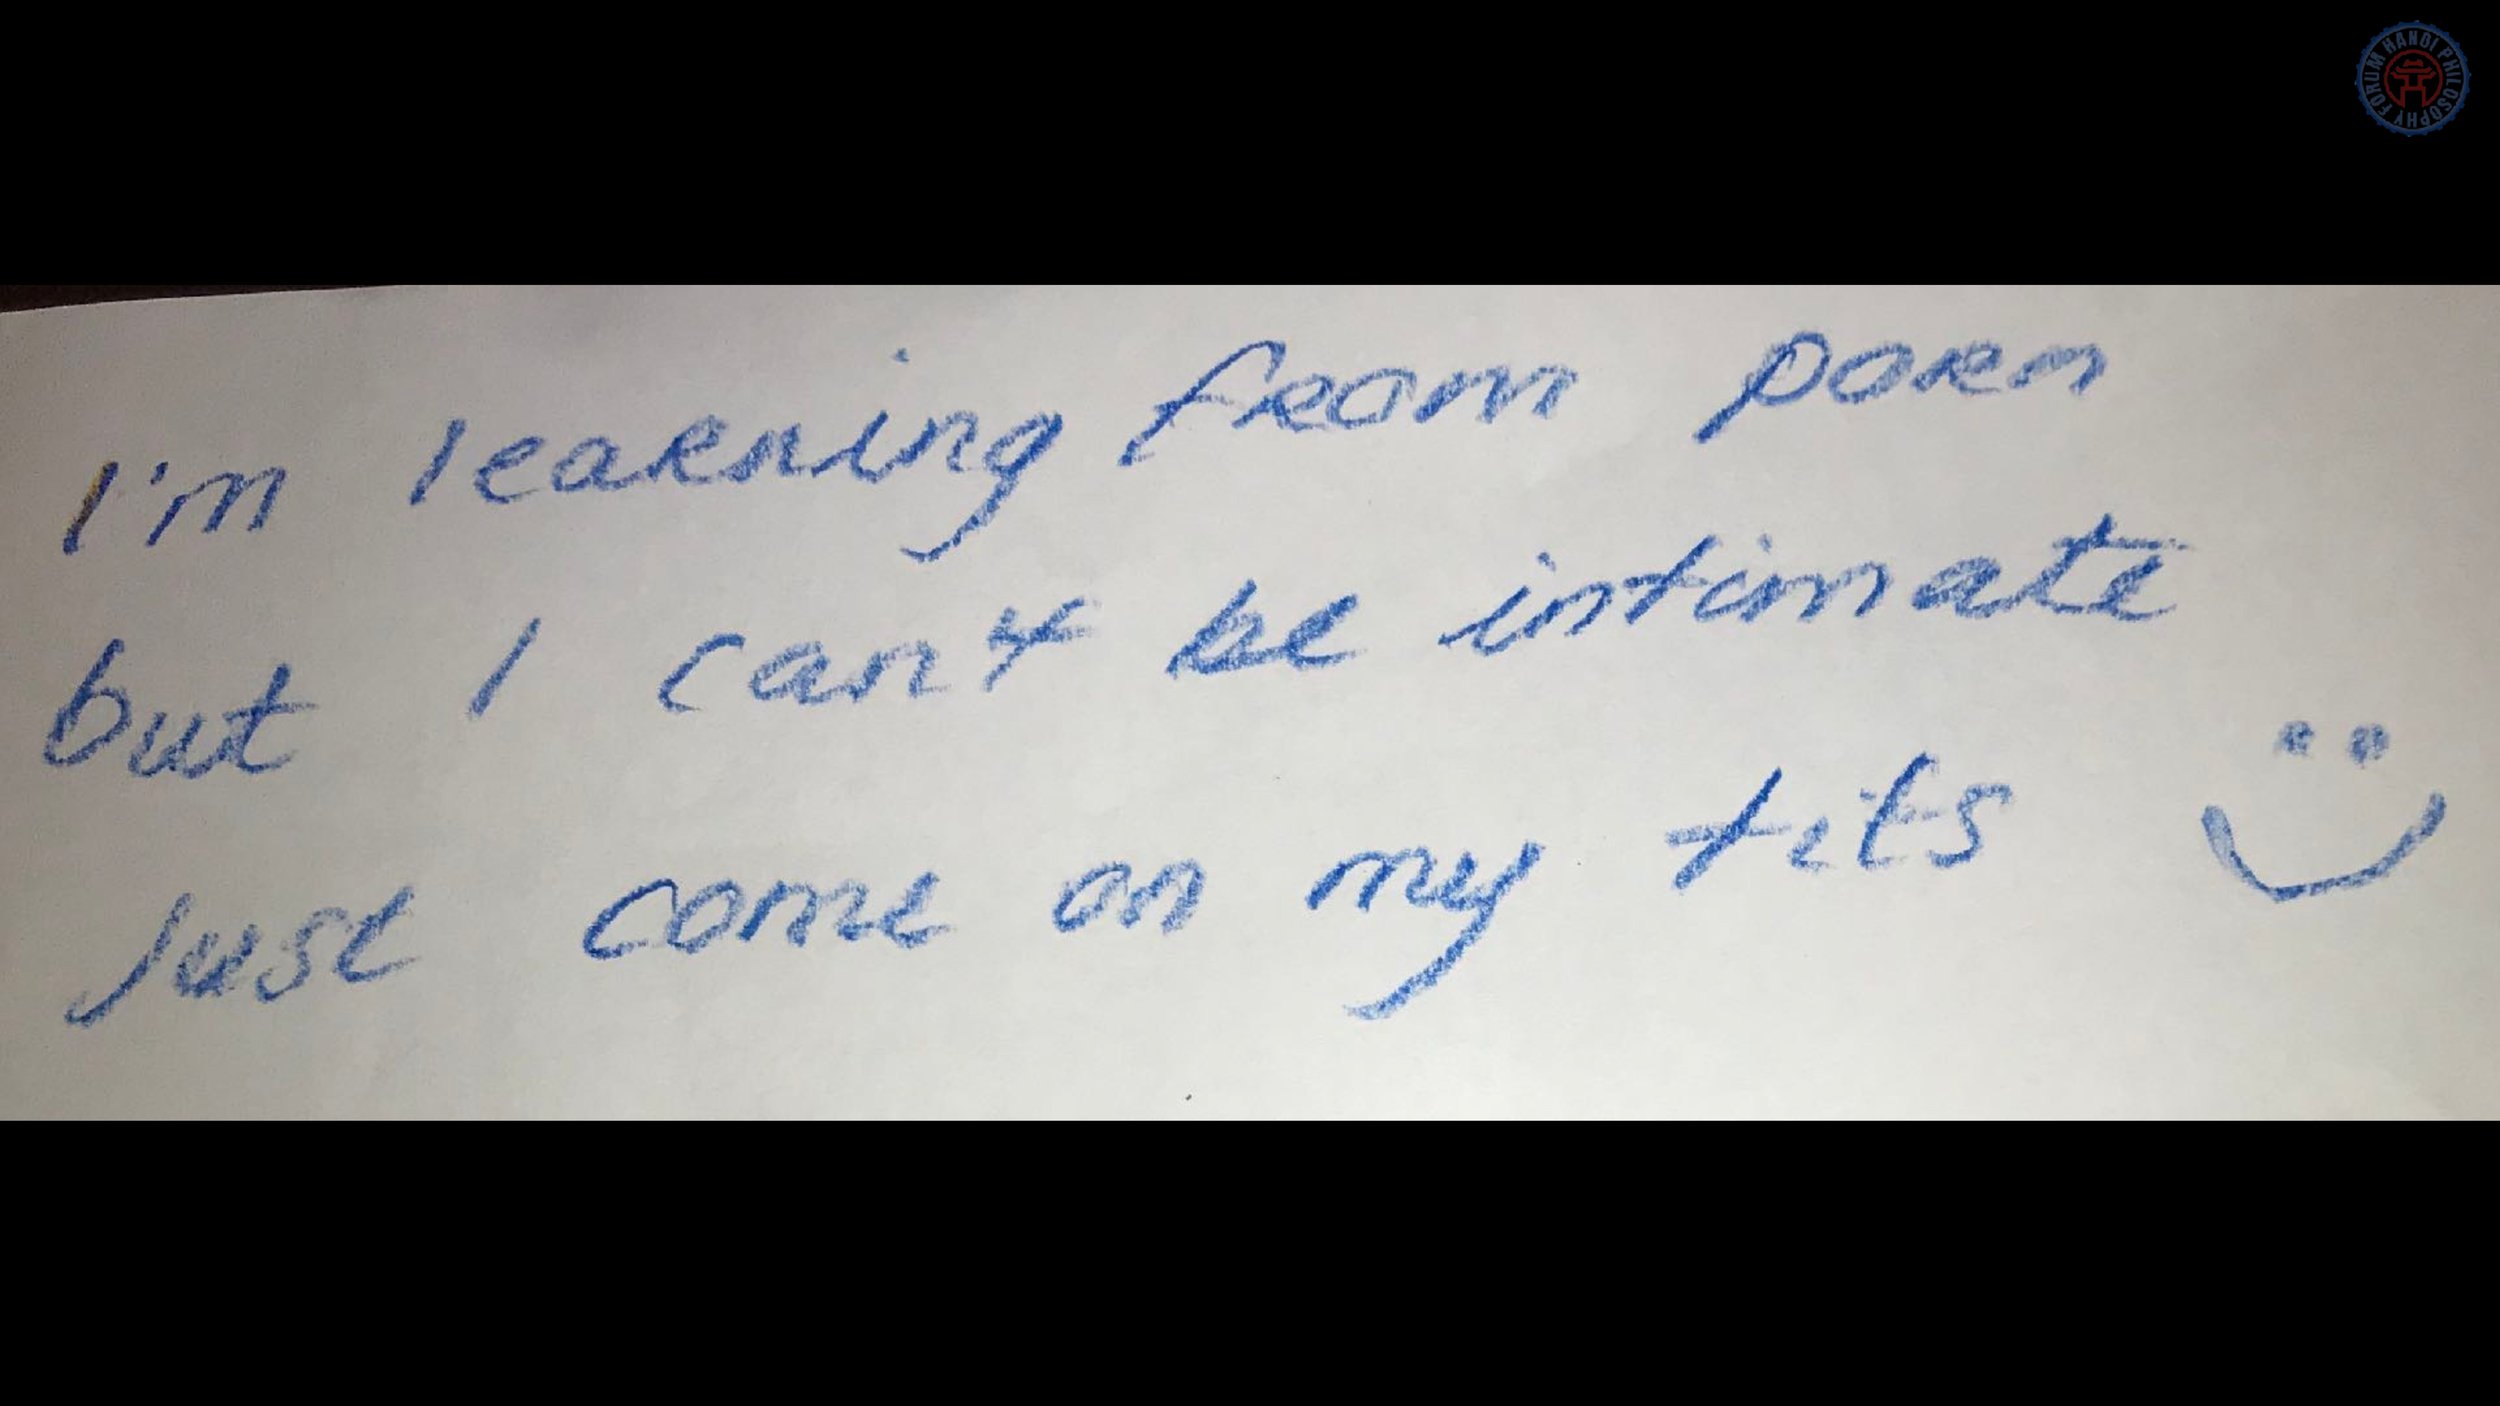 HANOI PHILOSOPHY FORUM
I'm learning from porn
but I can't be intimate
just come on my tits